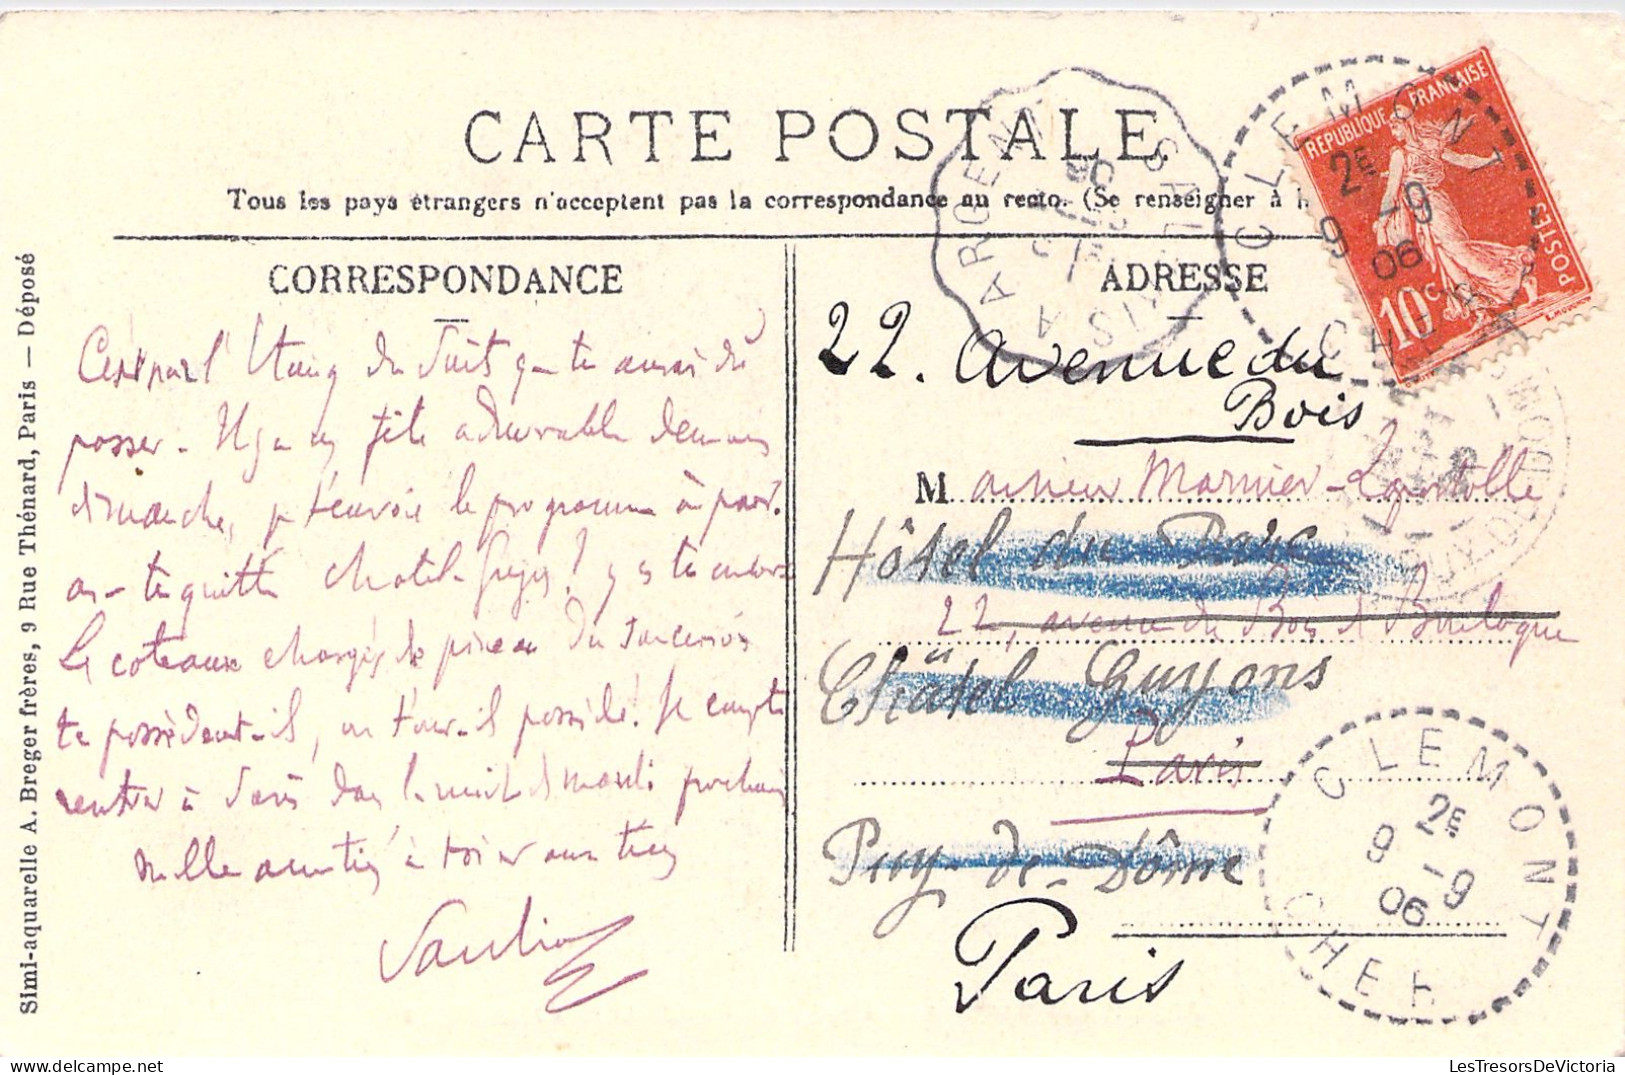 CARTE POSTALE
Tous les pays étrangers n'acceptent pas la correspondance au recto. (Se renseigner à
CORRESPONDANCE
C'est par l'Etang du Puits que tu auras dû
passer. Il y a en fête admirable demain
dimanche, je t'envoie le programme
as-tu quitté Chatel-Guyon ? y es tu encore
Le coteaux chargés de du Sancerrois
te possèdent-il, ou t'ont-il possédé! Je compte
rentrer à Paris dans la nuit de mardi prochain
Mille amitiés à toi et aux tiens
ADRESSE
22. Avenue du
Bois
Monsieur Marnier-Lapostolle
Hôtel du Parc
22, avenue du Bois de Boulogne
Châtel Guyons
Paris
Puy-de-Dôme
Paris
Simi-aquarelle A. Breger frères, 9 Rue Thénard, Paris — Déposé
REPUBLIQUE FRANÇAISE
10c
POSTES
CLEMONT
2E
9 -9
06
CHER
ARGENT A
06
CLEMONT
2E
9 -9
06
CHER
LesTresorsDeVictoria